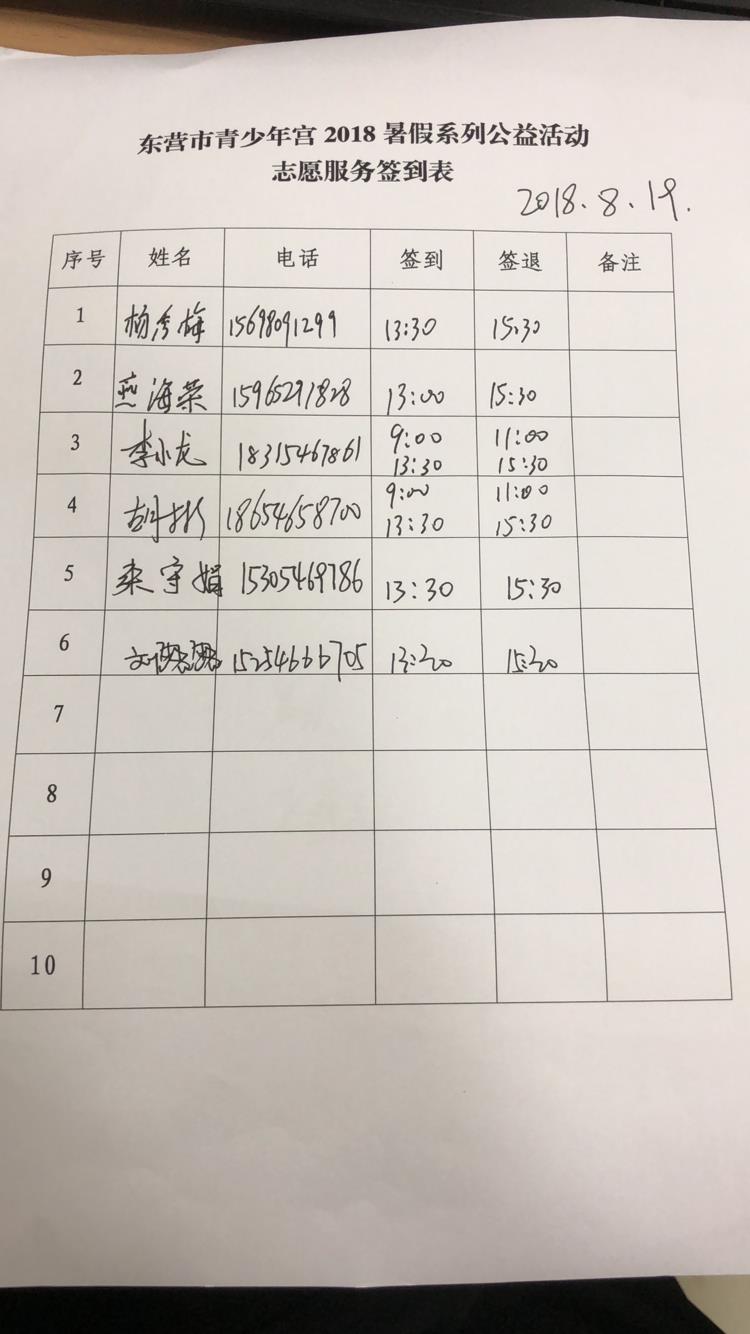 东营市青少年宫 2018 暑假系列公益活动
志愿服务签到表
2018.8.19.
序号 姓名 电话 签到 签退 备注
1 杨秀梅 15698091299 13:30 15:30
2 燕海荣 15965291828 13:00 15:30
3 李小龙 18315467861 9:00 11:00
13:30 15:30
4 胡彬 18654658700 9:00 11:00
13:30 15:30
5 宋守娟 15305469786 13:30 15:30
6 13:30 15:30
7
8
9
10